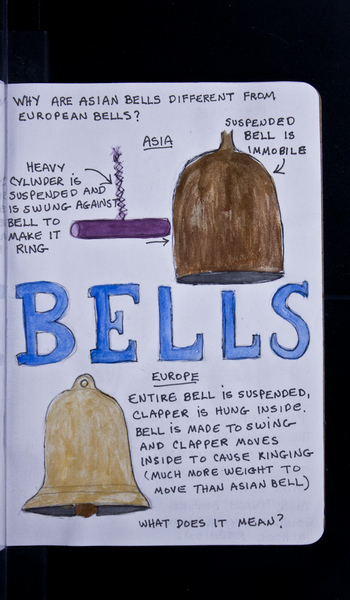 WHY ARE ASIAN BELLS DIFFERENT FROM
EUROPEAN BELLS?
ASIA
SUSPENDED
BELL IS
IMMOBILE
HEAVY
CYLINDER IS
SUSPENDED AND
IS SWUNG AGAINST
BELL TO
MAKE IT
RING
BELLS
EUROPE
ENTIRE BELL IS SUSPENDED,
CLAPPER IS HUNG INSIDE.
BELL IS MADE TO SWING
AND CLAPPER MOVES
INSIDE TO CAUSE RINGING
(MUCH MORE WEIGHT TO
MOVE THAN ASIAN BELL)
WHAT DOES IT MEAN?